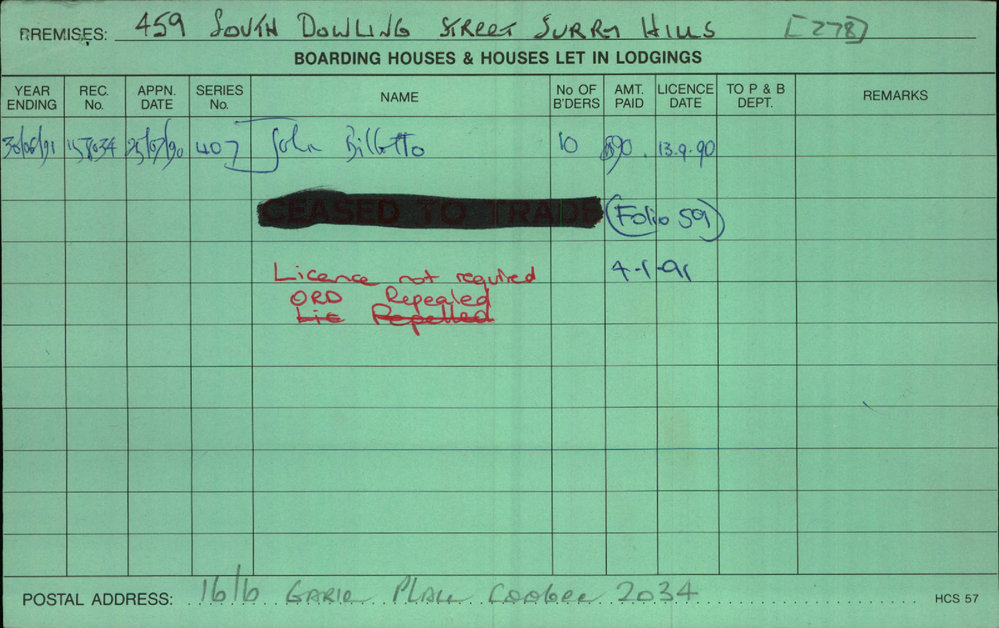 PREMISES: 459 SOUTH DOWLING STREET SURRY HILLS [278]
BOARDING HOUSES & HOUSES LET IN LODGINGS
YEAR ENDING REC. No. APPN. DATE SERIES No. NAME No OF B'DERS AMT. PAID LICENCE DATE TO P & B DEPT. REMARKS
30/06/91 157034 25/07/90 407 John Billotto 10 $90. 13.9.90
CEASED TO TRADE (Folio 59)
Licence not required 4-1-91
ORD Repealed
Lic Repelled
POSTAL ADDRESS: 16/6 GARIE PLACE COOGEE 2034 HCS 57